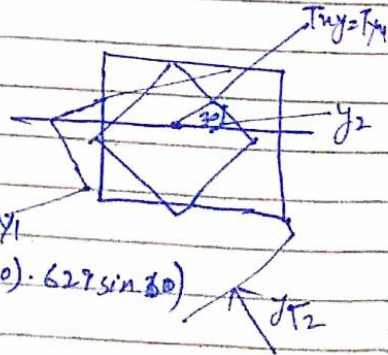 Txy=Tyx
30
y2
y1
0).627 sin 30)
yT2